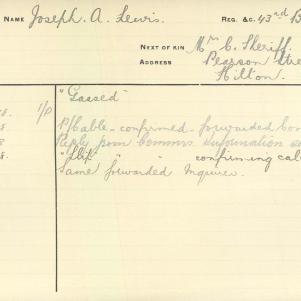 NAME Joseph. A. Lewis. REG. &C. 43rd B
NEXT OF KIN Mrs C. Sheriff.
ADDRESS Pearson Stre
Hilton.
18. 1/P "Gassed"
8 P/Cable - confirmed - forwarded
8 Reply from Comms information
8 " " confirming cab
Same forwarded Inquirer.